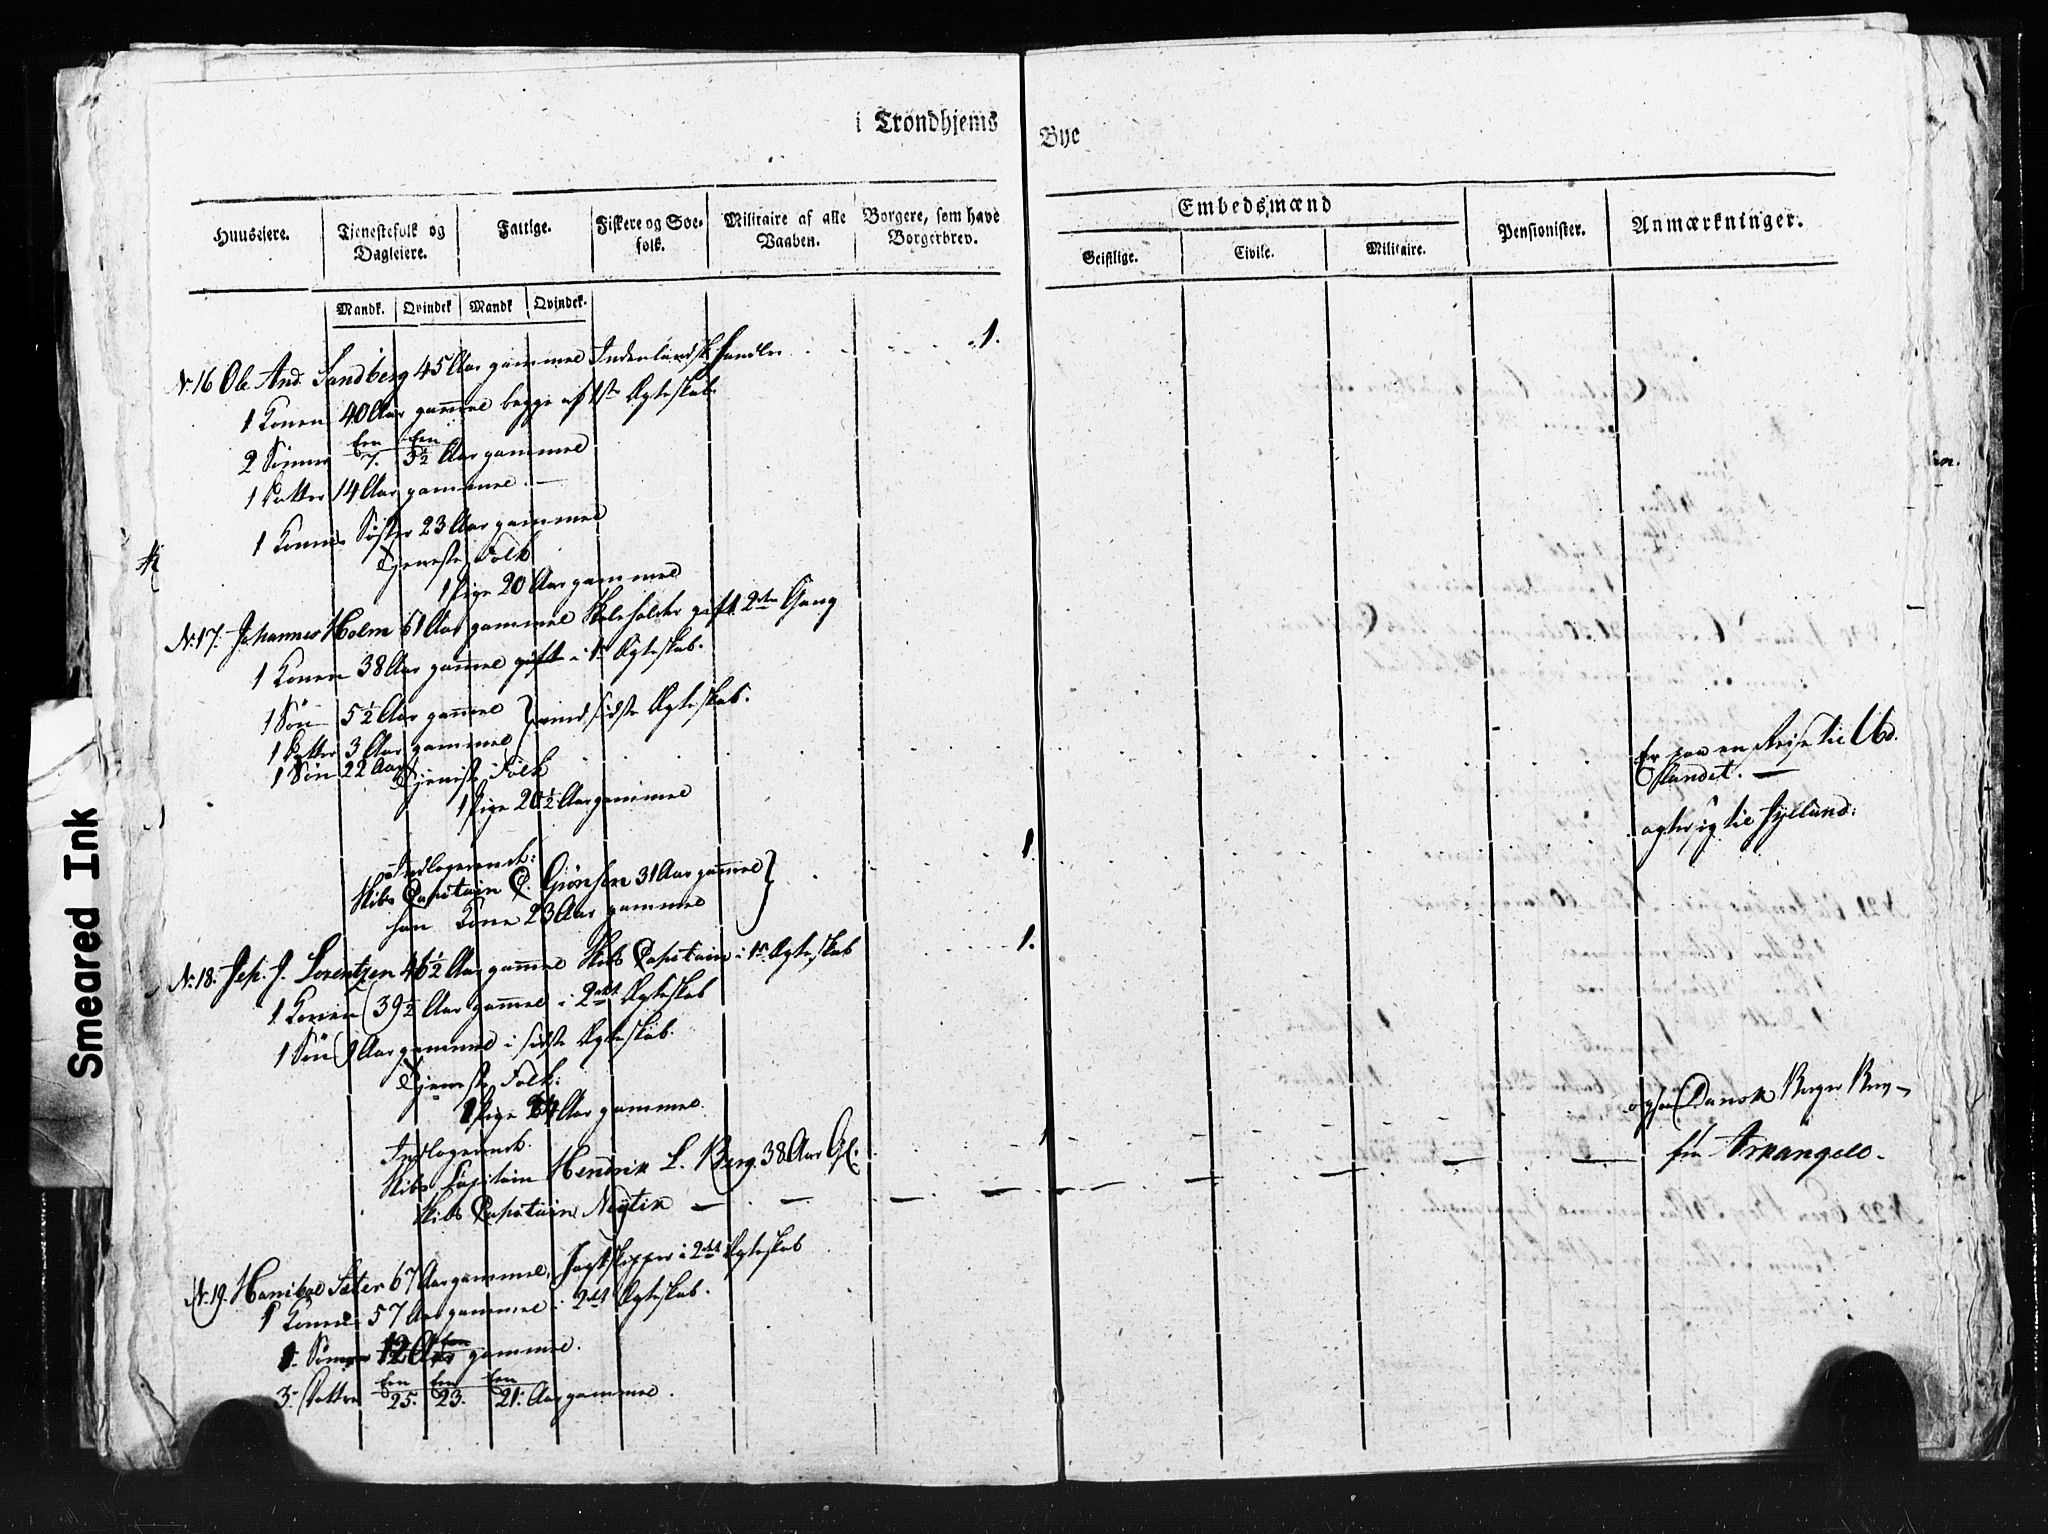 i Trondhjems Bye
Huuseiere. Tjenestefolk og Dagleiere. Fattige. Fiskere og Søefolk. Militaire af alle Vaaben. Borgere, som have Borgerbrev. Embedsmænd Pensionister. Anmærkninger.
Geistlige. Civile. Militaire.
Mandk. Qvindek Mandk Qvindek.
No. 16 Ole And. Sandberg 45 Aar gammel Indenlandsk Handler 1.
1 Konen 40 Aar gammel begge af 1ste Ægteskab.
2 Sønner Een 7. Een 3½ Aar gammel
1 Datter 14 Aar gammel
1 Konens Søster 23 Aar gammel
Tjeneste Folk
1 Pige 20 Aar gammel
No. 17. Johannes Holm 61 Aar gammel Skoleholder gift 2den Gang
1 Konen 38 Aar gammel gift i 1te Ægteskab.
1 Søn 5½ Aar gammel
1 Datter 3 Aar gammel } med sidste Ægteskab.
1 Søn 22 Aar Er paa en Reise til Ud-
landet.
Tjeneste Folk
1 Pige 20½ Aar gammel
agter sig til Jylland.
Indlogerende:
Skibs Capitain P. Grönsen 31 Aar gammel 1.
han Kone 23 Aar gammel
No. 18. Jep. J. Lorentzen 46½ Aar gammel Skibs Capitain i 1te Ægteskab 1.
1 Konen 39½ Aar gammel i 2det Ægteskab
1 Søn 9 Aar gammel i sidste Ægteskab.
Tjeneste Folk:
1 Pige 24 Aar gammel
Indlogerende.
Skibs Capitain Hendrik L. Berg. 38 Aar Gl. 1
ogsaa Dansk Borger Brev
Skibs Capitain Neytik fra Arkangel.
No. 19. Hanibal Sæter 67 Aar gammel, Jagtskipper i 2det Ægteskab
1 Konen 57 Aar gammel i 2det Ægteskab.
1 Sønner 12 Aar gammel.
3 Døttre Een 25. Een 23. Een 21. Aar gammel.
Smeared Ink